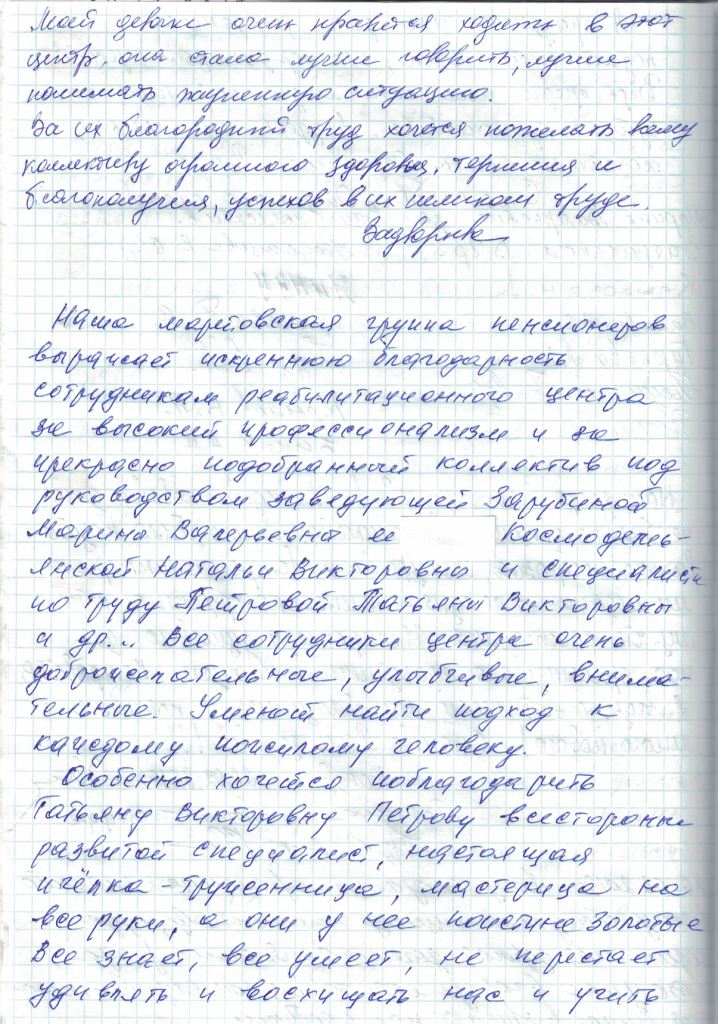 Моей девочке очень нравится ходить в этот
центр, она стала лучше говорить, лучше
понимать жизненную ситуацию.
За их благородный труд хочется пожелать всему
коллективу огромного здоровья, терпения и
благополучия, успехов в их нелегком труде.
Наша мартовская группа пенсионеров
выражает искреннюю благодарность
сотрудникам реабилитационного центра
за высокий профессионализм и за
прекрасно подобранный коллектив под
руководством заведующей Зарубиной
Марины Валерьевны и Космодемь-
янской Натальи Викторовны и специалиста
по труду Петровой Татьяны Викторовны
и др... Все сотрудники центра очень
доброжелательные, улыбчивые, внима-
тельные. Умеют найти подход к
каждому пожилому человеку.
Особенно хочется поблагодарить
Татьяну Викторовну Петрову - всесторонне
развитой специалист, настоящая
пчёлка - труженница, мастерица на
все руки, а они у нее поистине золотые
Все знает, все умеет, не перестает
удивлять и восхищать нас и учить